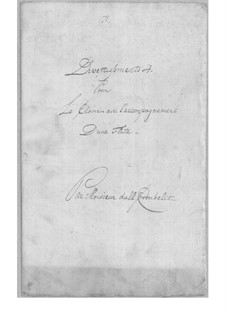 Divertissement
Pour
Le Clavecin avec l'accompagnement
D'une Flûte
Par Monsieur dall